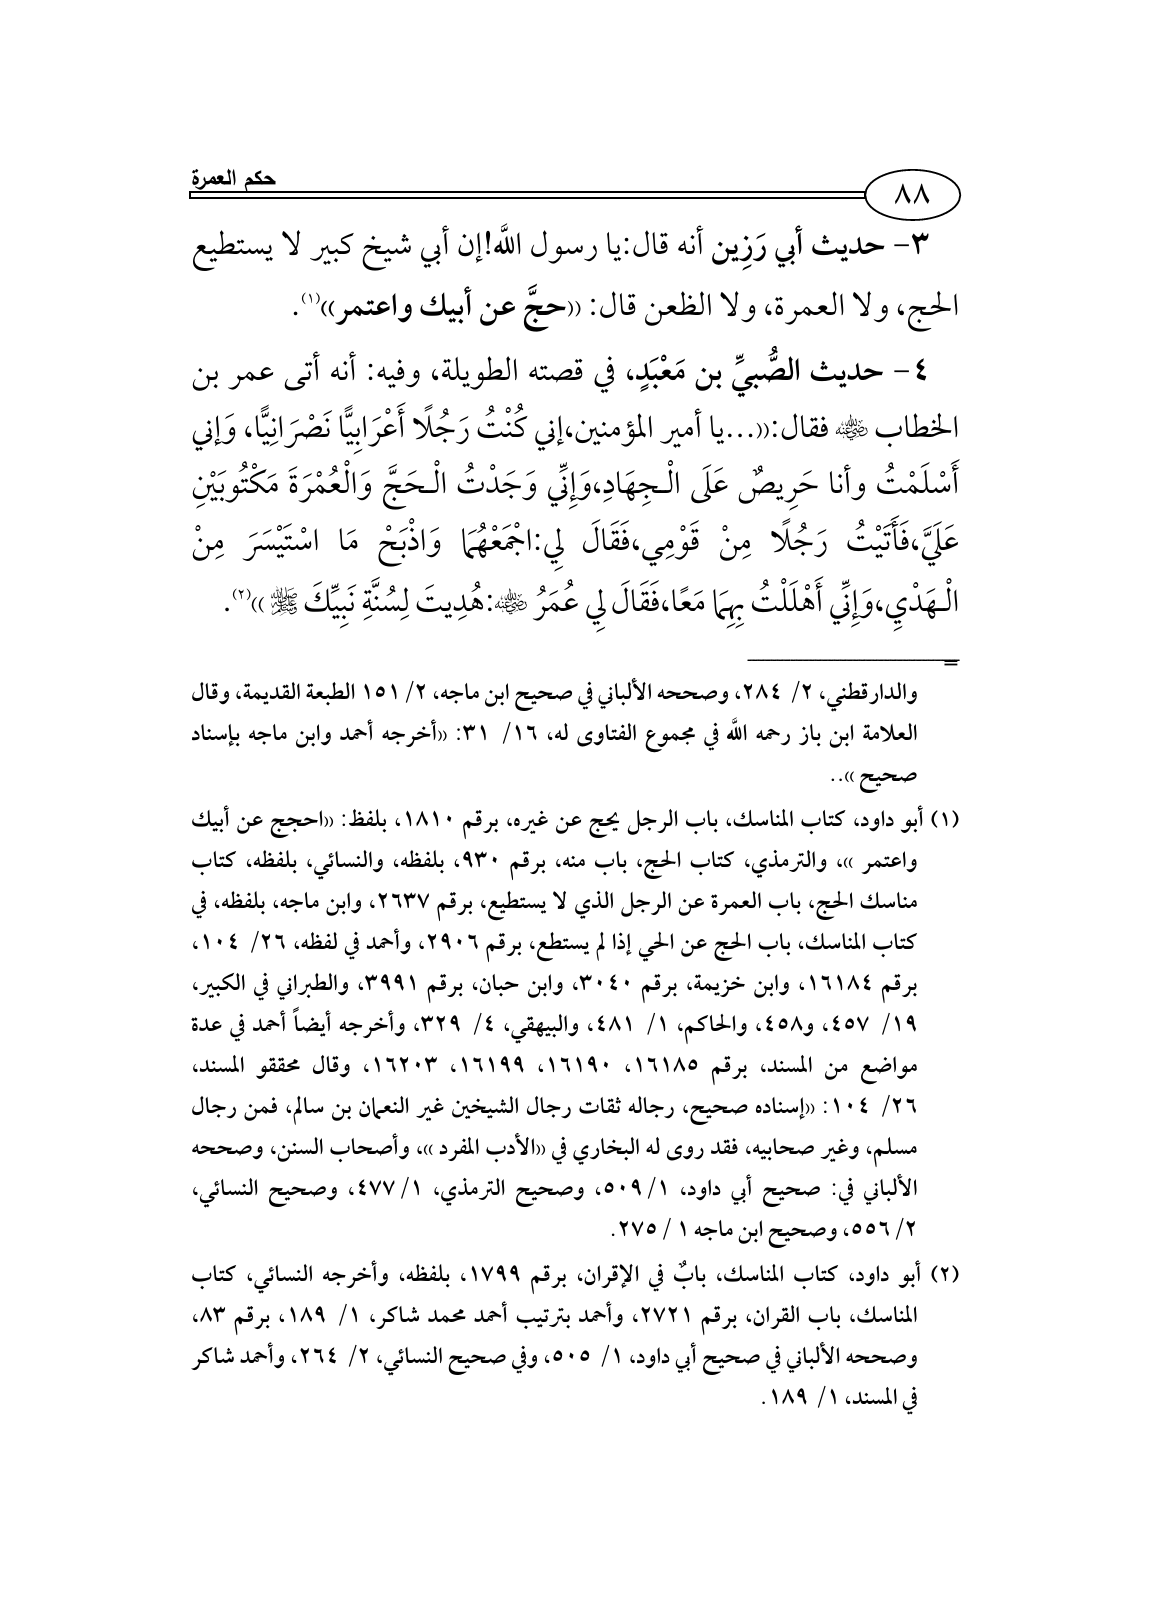 حكم العمرة
٨٨
٣- حديث أبي رَزِين أنه قال:يا رسول اللَّه!إن أبي شيخ كبير لا يستطيع
الحج، ولا العمرة، ولا الظعن قال: ((حجَّ عن أبيك واعتمر))(١).
٤- حديث الصُّبيِّ بن مَعْبَدٍ، في قصته الطويلة، وفيه: أنه أتى عمر بن
الخطاب ﵁ فقال:((...يا أمير المؤمنين،إني كُنْتُ رَجُلًا أَعْرَابِيًّا نَصْرَانِيًّا، وَإني
أَسْلَمْتُ وأنا حَرِيصٌ عَلَى الْـجِهَادِ،وَإِنِّي وَجَدْتُ الْـحَجَّ وَالْعُمْرَةَ مَكْتُوبَيْنِ
عَلَيَّ،فَأَتَيْتُ رَجُلًا مِنْ قَوْمِي،فَقَالَ لِي:اجْمَعْهُمَا وَاذْبَحْ مَا اسْتَيْسَرَ مِنْ
الْـهَدْيِ،وَإِنِّي أَهْلَلْتُ بِهِمَا مَعًا،فَقَالَ لِي عُمَرُ ﵁:هُدِيتَ لِسُنَّةِ نَبِيِّكَ ﷺ ))(٢).
=
والدارقطني، ٢/ ٢٨٤، وصححه الألباني في صحيح ابن ماجه، ٢/ ١٥١ الطبعة القديمة، وقال
العلامة ابن باز رحمه اللَّه في مجموع الفتاوى له، ١٦/ ٣١: ((أخرجه أحمد وابن ماجه بإسناد
صحيح ))..
(١) أبو داود، كتاب المناسك، باب الرجل يحج عن غيره، برقم ١٨١٠، بلفظ: ((احجج عن أبيك
واعتمر ))، والترمذي، كتاب الحج، باب منه، برقم ٩٣٠، بلفظه، والنسائي، بلفظه، كتاب
مناسك الحج، باب العمرة عن الرجل الذي لا يستطيع، برقم ٢٦٣٧، وابن ماجه، بلفظه، في
كتاب المناسك، باب الحج عن الحي إذا لم يستطع، برقم ٢٩٠٦، وأحمد في لفظه، ٢٦/ ١٠٤،
برقم ١٦١٨٤، وابن خزيمة، برقم ٣٠٤٠، وابن حبان، برقم ٣٩٩١، والطبراني في الكبير،
١٩/ ٤٥٧، و٤٥٨، والحاكم، ١/ ٤٨١، والبيهقي، ٤/ ٣٢٩، وأخرجه أيضاً أحمد في عدة
مواضع من المسند، برقم ١٦١٨٥، ١٦١٩٠، ١٦١٩٩، ١٦٢٠٣، وقال محققو المسند،
٢٦/ ١٠٤: ((إسناده صحيح، رجاله ثقات رجال الشيخين غير النعمان بن سالم، فمن رجال
مسلم، وغير صحابيه، فقد روى له البخاري في ((الأدب المفرد ))، وأصحاب السنن، وصححه
الألباني في: صحيح أبي داود، ١/ ٥٠٩، وصحيح الترمذي، ١/ ٤٧٧، وصحيح النسائي،
٢/ ٥٥٦، وصحيح ابن ماجه ١ / ٢٧٥.
(٢) أبو داود، كتاب المناسك، بابٌ في الإقران، برقم ١٧٩٩، بلفظه، وأخرجه النسائي، كتاب
المناسك، باب القران، برقم ٢٧٢١، وأحمد بترتيب أحمد محمد شاكر، ١/ ١٨٩، برقم ٨٣،
وصححه الألباني في صحيح أبي داود، ١/ ٥٠٥، وفي صحيح النسائي، ٢/ ٢٦٤، وأحمد شاكر
في المسند، ١/ ١٨٩.